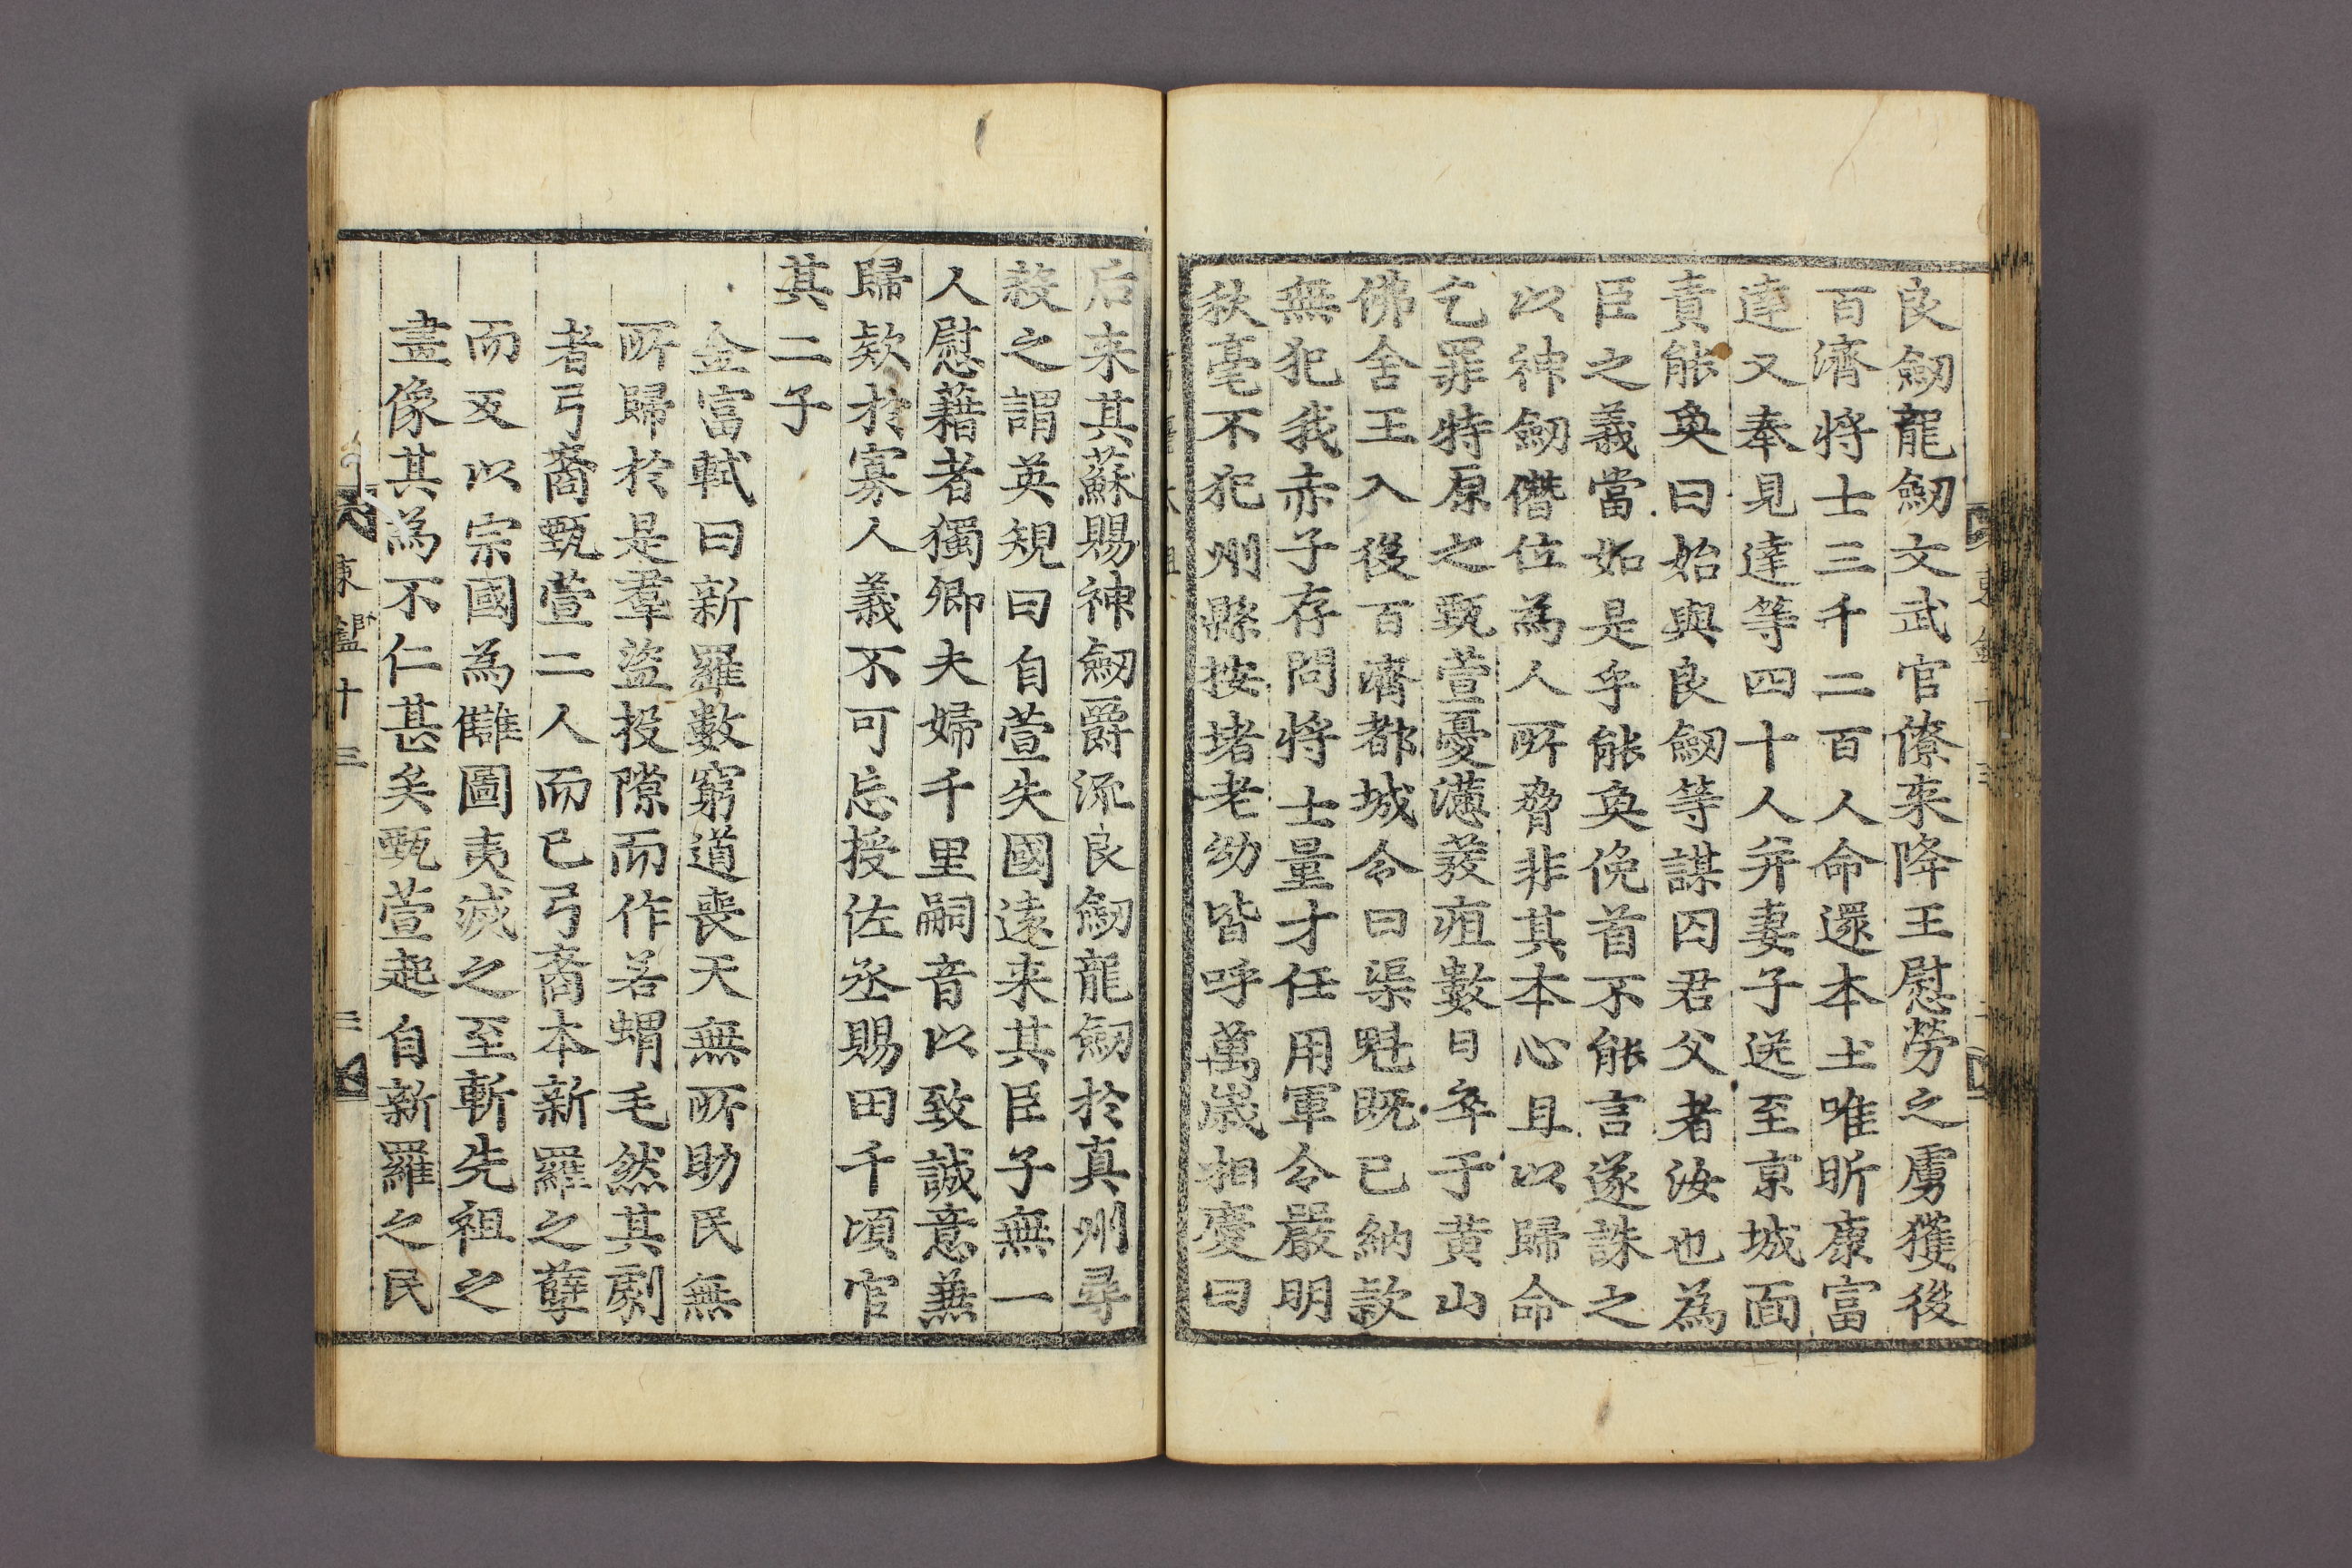 良劒龍劒文武官僚来降王慰勞之虜獲後
百濟將士三千二百人命還本土唯昕康富
達又奉見達等四十人并妻子送至京城面
責能奐曰始與良劒等謀囚君父者汝也為
臣之義當如是乎能奐俛首不能言遂誅之
以神劒僭位為人所脅非其本心且以歸命
乞罪特原之甄萱憂懣發疽數日卒于黄山
佛舍王入後百濟都城令曰渠魁既已納款
無犯我赤子存問將士量才任用軍令嚴明
秋毫不犯州縣按堵老幼皆呼萬歲相慶曰
后来其蘇賜神劒爵流良劒龍劒於真州尋
殺之謂英規曰自萱失國遠来其臣子無一
人慰藉者獨卿夫婦千里嗣音以致誠意兼
歸款於寡人義不可忘授佐丞賜田千頃官
其二子
金富軾曰新羅數窮道喪天無所助民無
所歸於是羣盜投隙而作若蝟毛然其劇
者弓裔甄萱二人而已弓裔本新羅之孽
而反以宗國為讎圖夷滅之至斬先祖之
畫像其為不仁甚矣甄萱起自新羅之民
東鑑十三